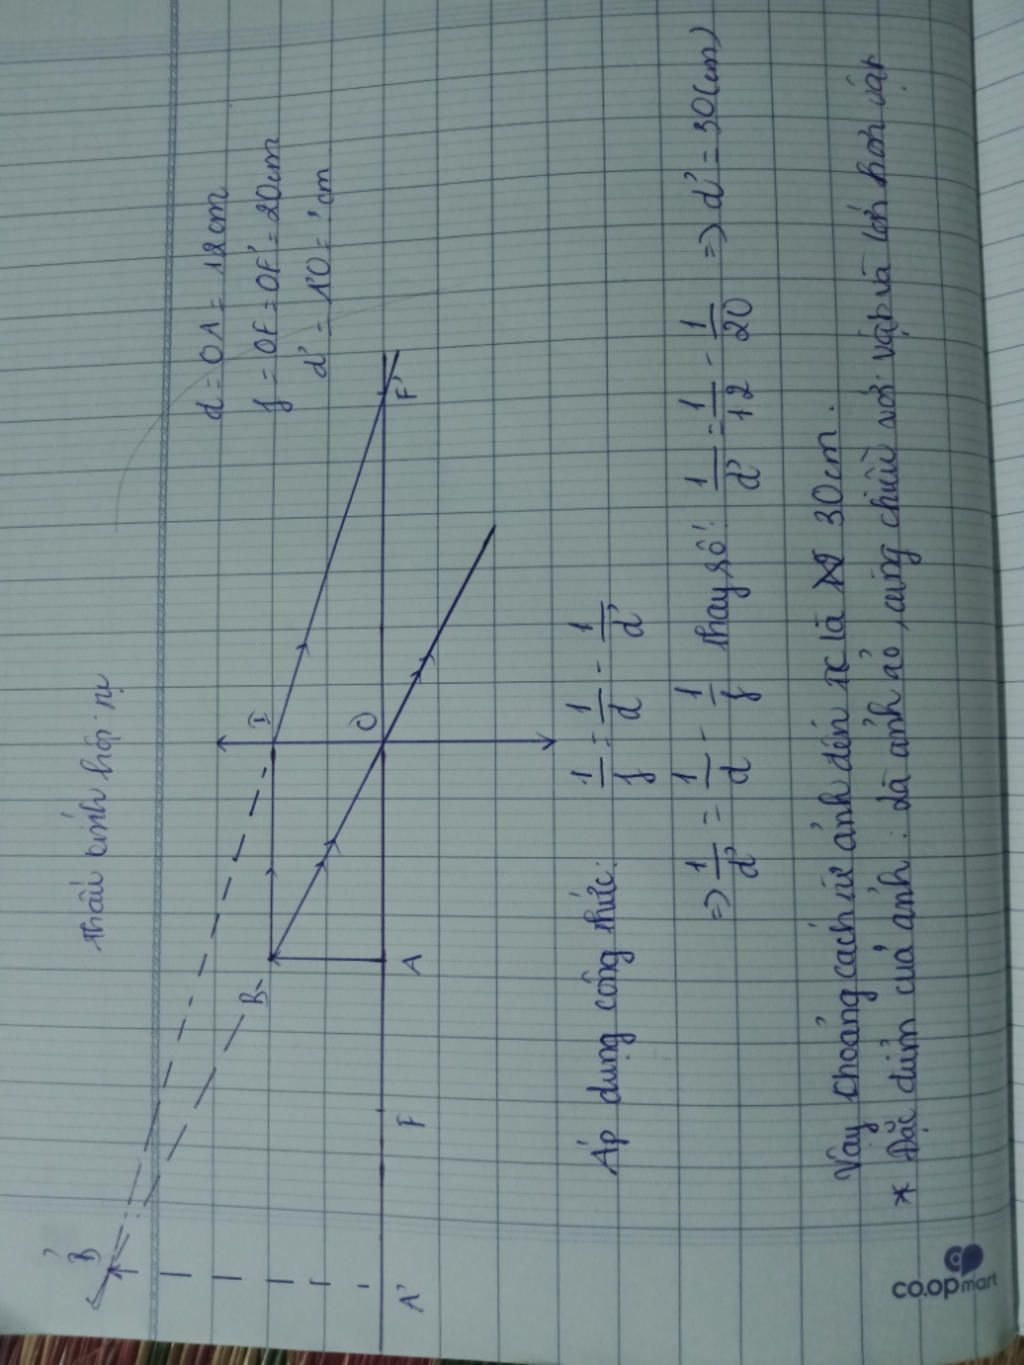 Thấu kính hội tụ
d = OA = 12cm
f = OF = OF' = 20cm
d' = A'O = ? cm
B'
B
I
O
A'
F
A
F'
Áp dụng công thức: 1/f = 1/d - 1/d'
=> 1/d' = 1/d - 1/f thay số: 1/d' = 1/12 - 1/20 => d' = 30(cm)
Vậy khoảng cách từ ảnh đến là 30cm.
* Đặc điểm của ảnh: là ảnh ảo, cùng chiều với vật và lớn hơn vật
co.opmart